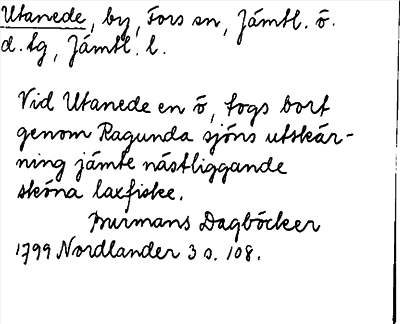 Utanede, by, Fors sn, Jämtl. ö.
d. tg, Jämtl. l.
Vid Utanede en ö, togs bort
genom Ragunda sjöns utskär-
ning jämte nästliggande
sköna laxfiske.
Burmans Dagböcker
1799 Nordlander 3 s. 108.